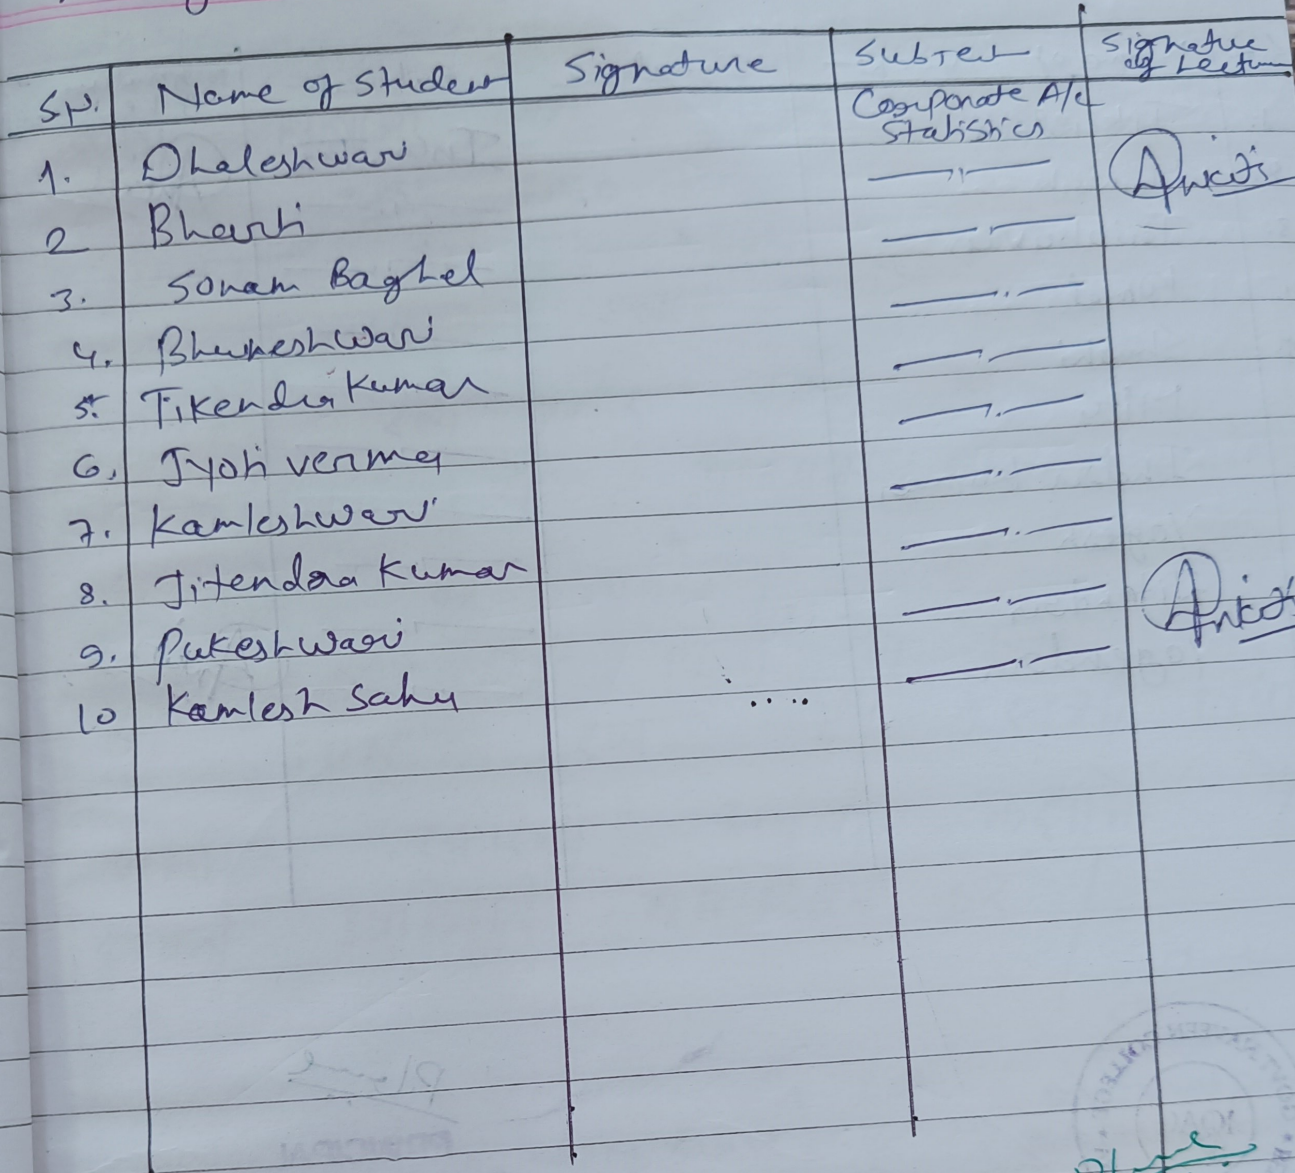 SN. Name of Student Signature Subject Signature of Lecturer
Corporate A/c
Statistics
1. Dhaleshwari —,,— Ankit
2 Bharti —,,—
3. Sonam Baghel —,,—
4. Bhuneshwari —,,—
5. Tikendra Kumar —,,—
6. Jyoti Verma —,,—
7. Kamleshwari —,,—
8. Jitendra Kumar —,,—
9. Pukeshwari —,,—
10 Kamlesh Sahu